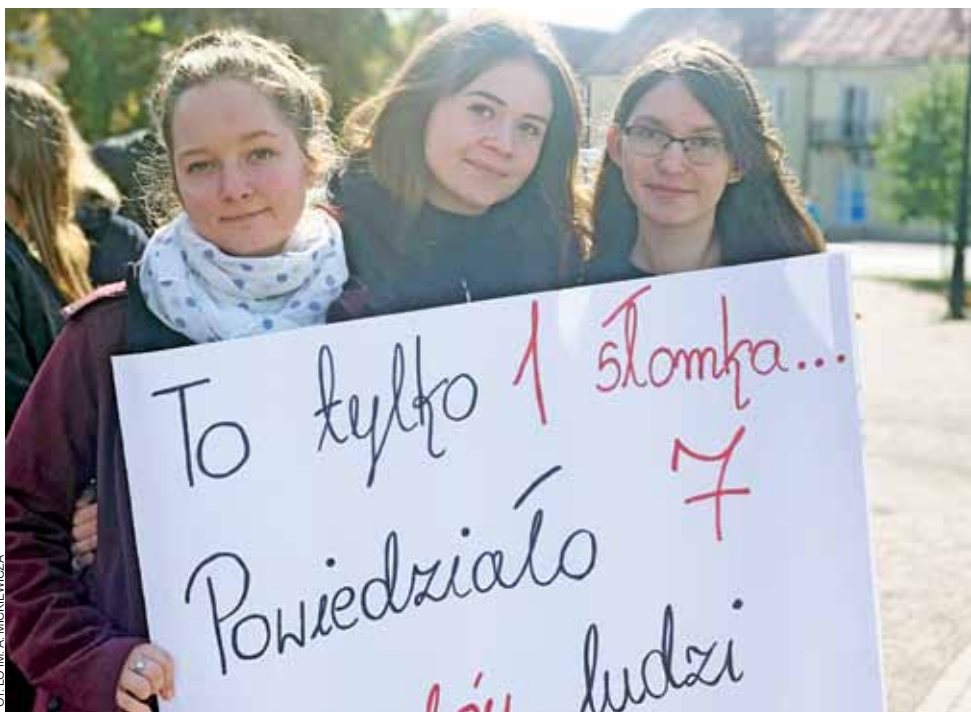 To tylko 1 słomka...
Powiedziało 7
ludzi
LO IM. A. MICKIEWICZA